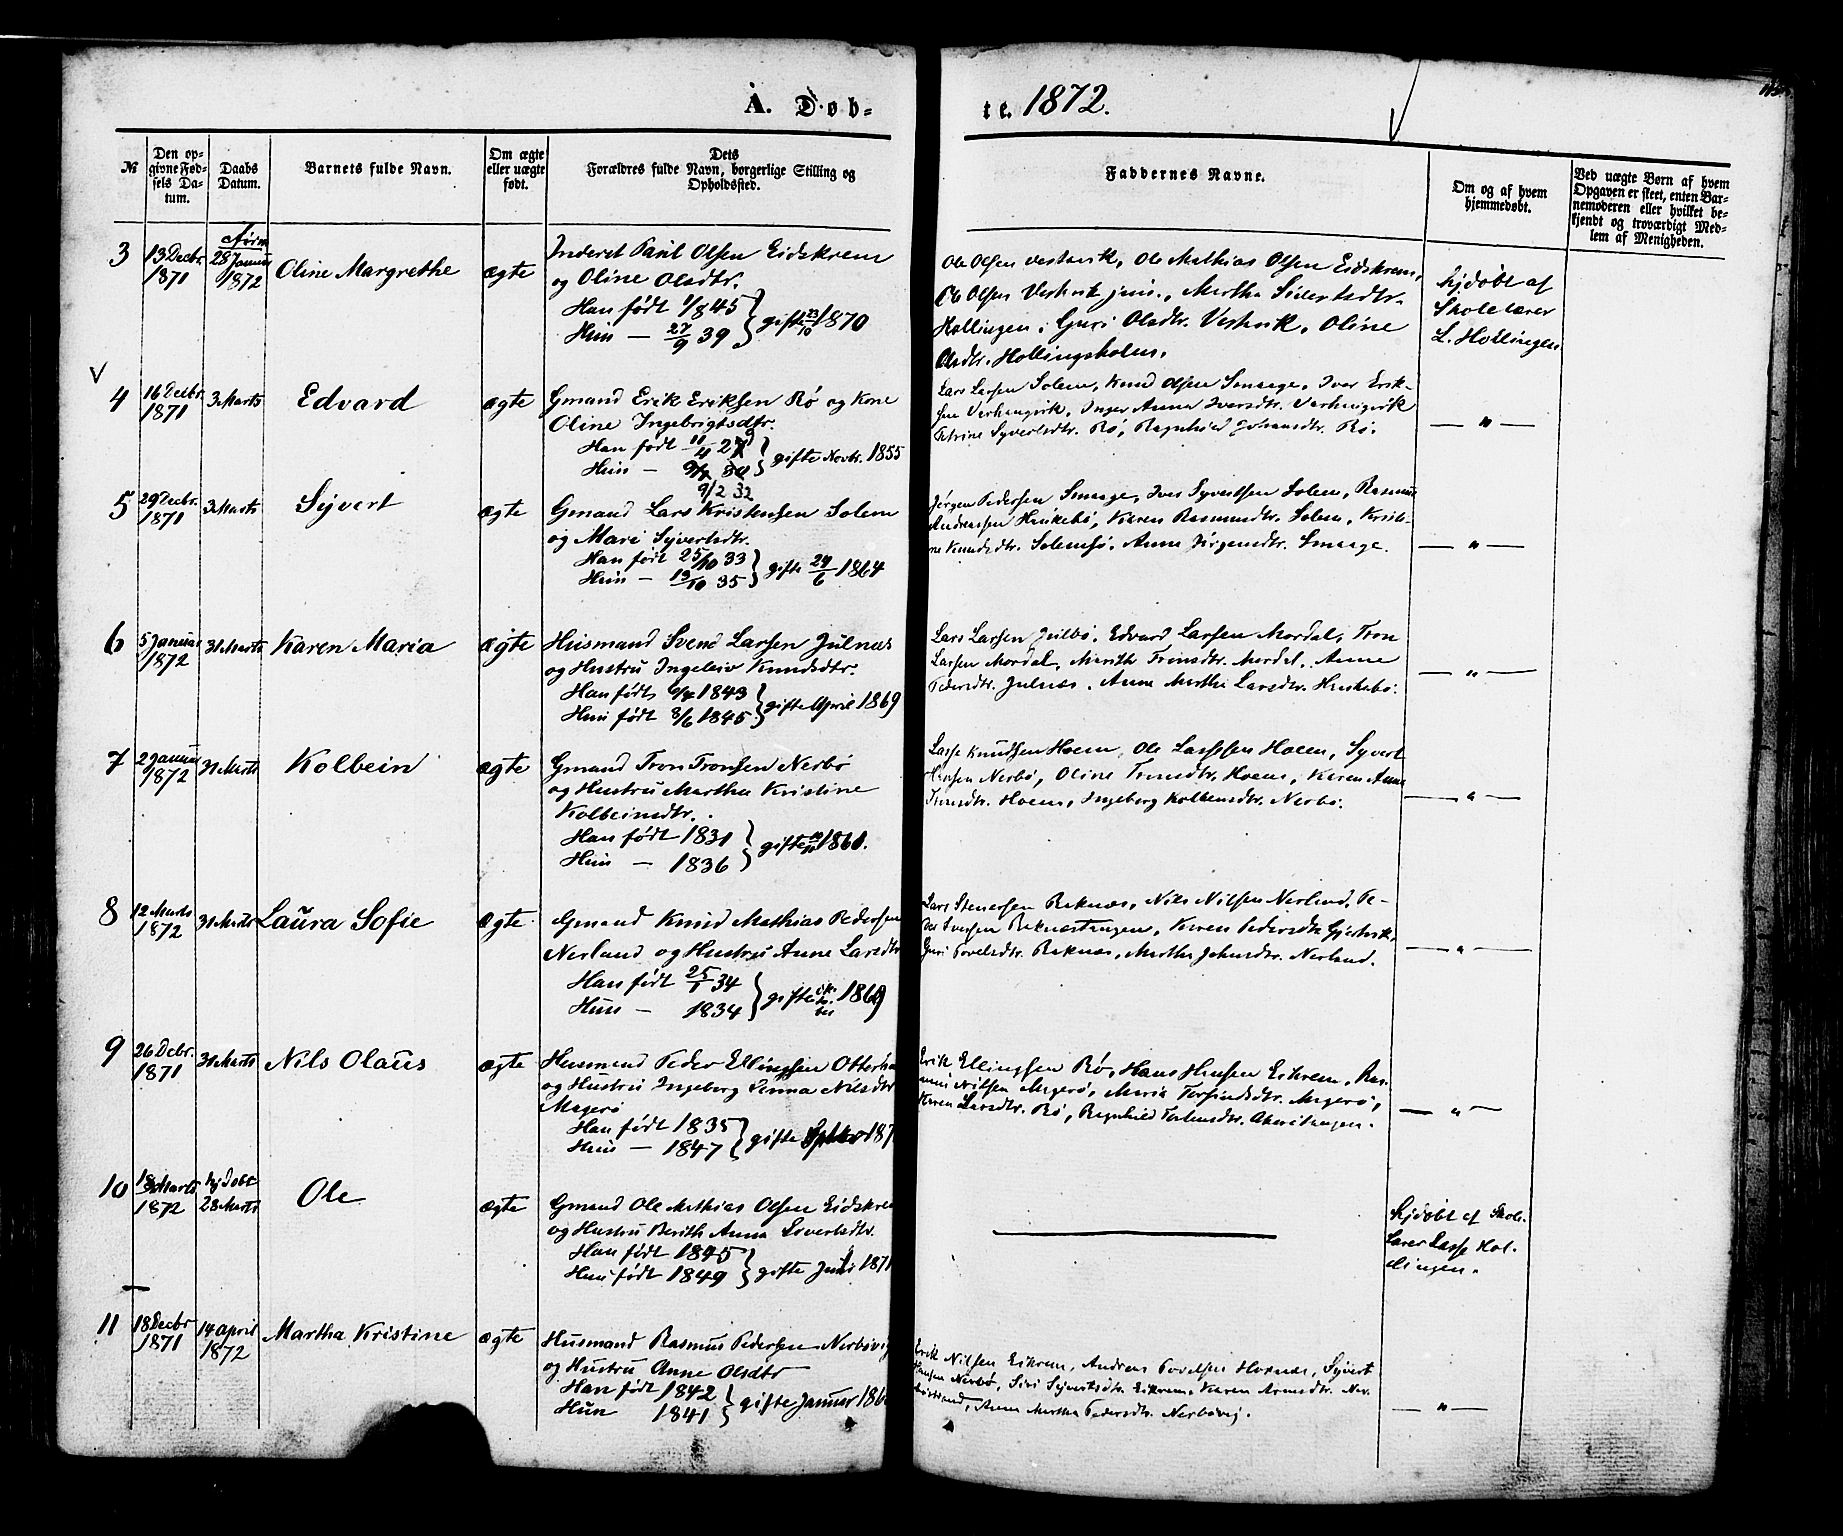 A. Døb=
te. 1872.
№
Den op-
givne Fød-
sels Da-
tum.
Daabs
Datum.
Barnets fulde Navn.
Om ægte
eller uægte
født.
Dets
Forældres fulde Navn, borgerlige Stilling og
Opholdssted.
Faddernes Navne.
Om og af hvem
hjemmedøbt.
Ved uægte Børn af hvem
Opgaven er skeet, enten Bar-
nemoderen eller hvilket be-
kjendt og troværdigt Med-
lem af Menigheden.
3
13 Decbr.
1871
28 Januar
1872
Oline Margrethe
ægte
Inderst Paul Olsen Eidskrem
og Oline Olsdtr.
Han født 1/8 45
Hun — 27/9 39
gifte 23/10 1870
Ole Olsen Vestavik, Ole Mathias Olsen Eidskrem,
Ole Olsen Vestavik jun., Martha Sivertsdtr.
Hollingen, Guri Olsdtr. Vestvik, Oline
Olsdtr. Hollingsholm.
hjdøbt af
Skolelærer
L. Hollingen
4
16 Decbr.
1871
3 Marts
Edvard
ægte
Gmand Erik Eriksen Rø og Kone
Oline Ingebrigtsdtr.
Han født 11/4 27
Hun —
9/2 32
gifte Novbr. 1855
Lars Larsen Solem, Knud Olsen Smaage, Iver Erik-
sen Varhaugvik, Inger Anna Iversdtr. Varhaugvik
Petrine Syvertsdtr. Rø, Ragnhild Johansdtr. Rø.
— " —
5
29 Decbr.
1871
3 Marts
Syvert
ægte
Gmand Lars Kristensen Solem
og Mari Syvertsdtr.
Han født 25/10 33
Hun — 13/10 35
gifte 24/6 1864
Jørgen Pedersen Smaage, Iver Syvertsen Solem, Rasmus
Andreassen Huskebø, Karen Rasmusdtr. Solem, Kristi-
ne Knudsdtr. Solemsø, Anne Jørgensdtr. Smaage.
— " —
6
5 Januar
1872
31 Marts
Karen Maria
ægte
Husmand Svend Larsen Julnæs
og Hustru Ingeleiv Knudsdtr.
Han født 1843
Hun født 8/6 1845
gifte April 1869
Lars Larsen Julbø, Edvard Larsen Mordal, Tron
Larsen Mordal, Marith Tronsdtr. Mordal, Anne
Pedersdtr. Julnæs, Anne Martha Larsdtr. Huskebø.
— " —
7
2 Januar
1872
31 Marts
Kolbein
ægte
Gmand Tron Tronsen Nerbø
og Hustru Martha Kristine
Kolbeinsdtr.
Han født 1831
Hun — 1836
gifte 1861.
Lasse Knudsen Hoem, Ole Larssen Hoem, Syvert
Hansen Nerbø, Oline Tronsdtr. Hoem, Karen Anne
Tronsdtr. Hoem, Ingeborg Kolbensdtr. Nerbø.
— " —
8
12 Marts
1872
31 Marts
Laura Sofie
ægte
Gmand Knud Mathias Pedersen
Nerland og Hustru Anne Larsdtr
Han født 25/1 34
Hun — 1834
gifte 186
Lars Stenersen Reknæs, Nils Nilsen Nerland, Pe-
der Iversen Reknæstangen, Karen Pedersdtr Gjertvik,
Guri Povelsdtr. Reknæs, Martha Johnsdtr. Nerland.
— " —
9
26 Debr.
1871
31 Marts
Nils Olaus
ægte
Husmand Peder Ellingsen
og Hustru Ingeborg Nilsdtr
Magerø
Han født 1835
Hun — 1847
gifte 187
Erik Ellingsen Rø, Hans Hansen Eikrem, Ras-
mus Nilsen Magerø, Maria Torfindsdtr. Magerø,
Karen Larsdtr. Rø, Ragnhild
— " —
10
18 Marts
1872
hjdøbt
28 Marts
Ole
ægte
Gmand Ole Mathias Olsen Eidskrem
og Hustru Berith Anna Sivertsdtr.
Han født 1845
Hun født 1849
gifte Juni 1871
hjdøbt af Skole-
lærer Lasse Hol-
lingen.
11
18 Decbr
1871
14 April
1872
Martha Kristine
ægte
Husmand Rasmus Pedersen Nerbøvig
og Hustru Anne Olsdtr
Han født 1842
Hun 1841
gifte Januar 186
Erik Nilsen Eikrem, Andreas Povelsen Hoxnæs, Syvert
Hansen Nerbø, Siri Syvertsdtr. Eikrem, Karen Arnesdtr. Ner-
Anne Martha Pedersdtr. Nerbøvig.
— " —